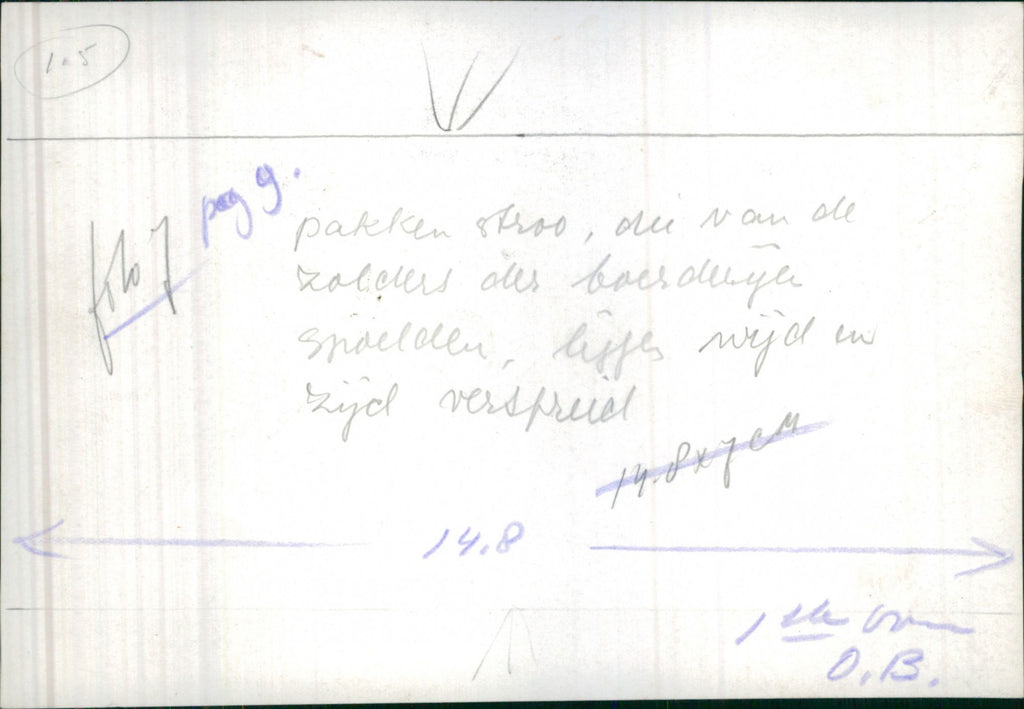 1.5
pag 9.
foto 7
pakken stroo, die van de
zolders der boerderijen
spoelden, liggen wijd en
zijd verspreid
14.8 x 7 cM
14.8
1ste
O.B.